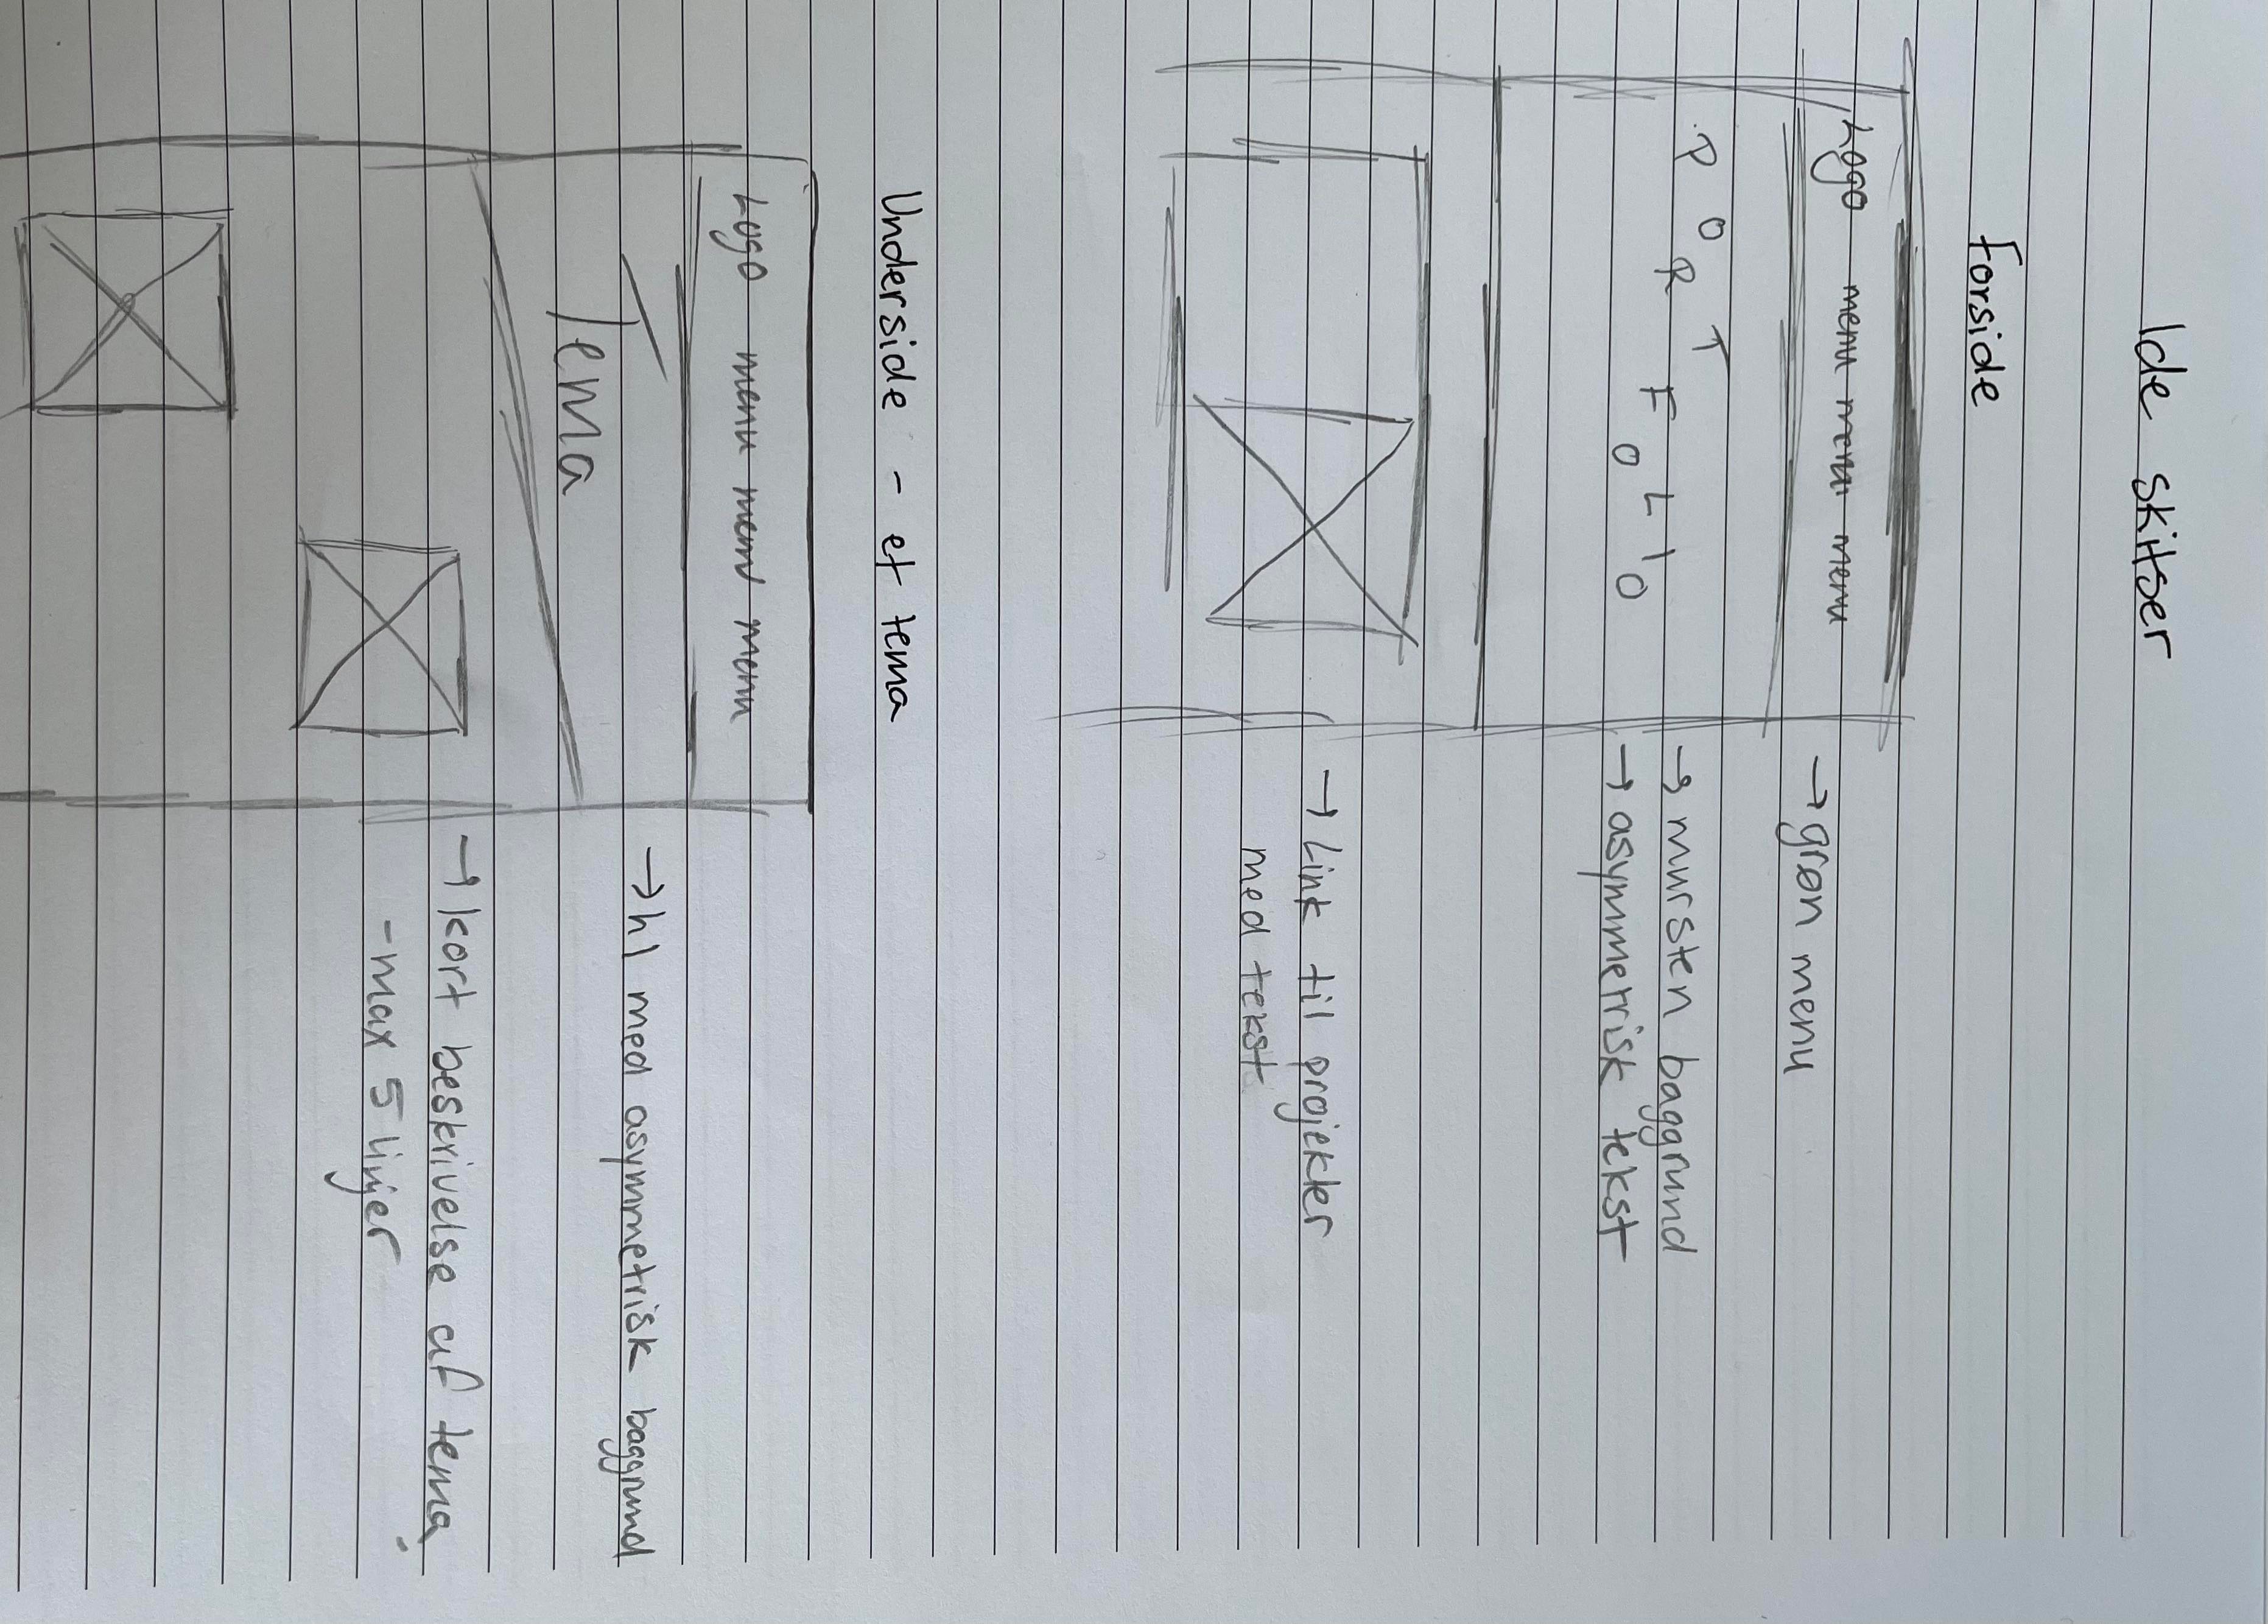 Ide skitser
Forside
Logo menu menu menu
→ grøn menu
PORTFOLIO
→ mursten baggrund
→ asymmetrisk tekst
→ Link til projekter
med tekst
Underside - et tema
Logo menu menu menu
Tema
→ h1 med asymmetrisk baggrund
→ kort beskrivelse af tema
- max 5 linjer